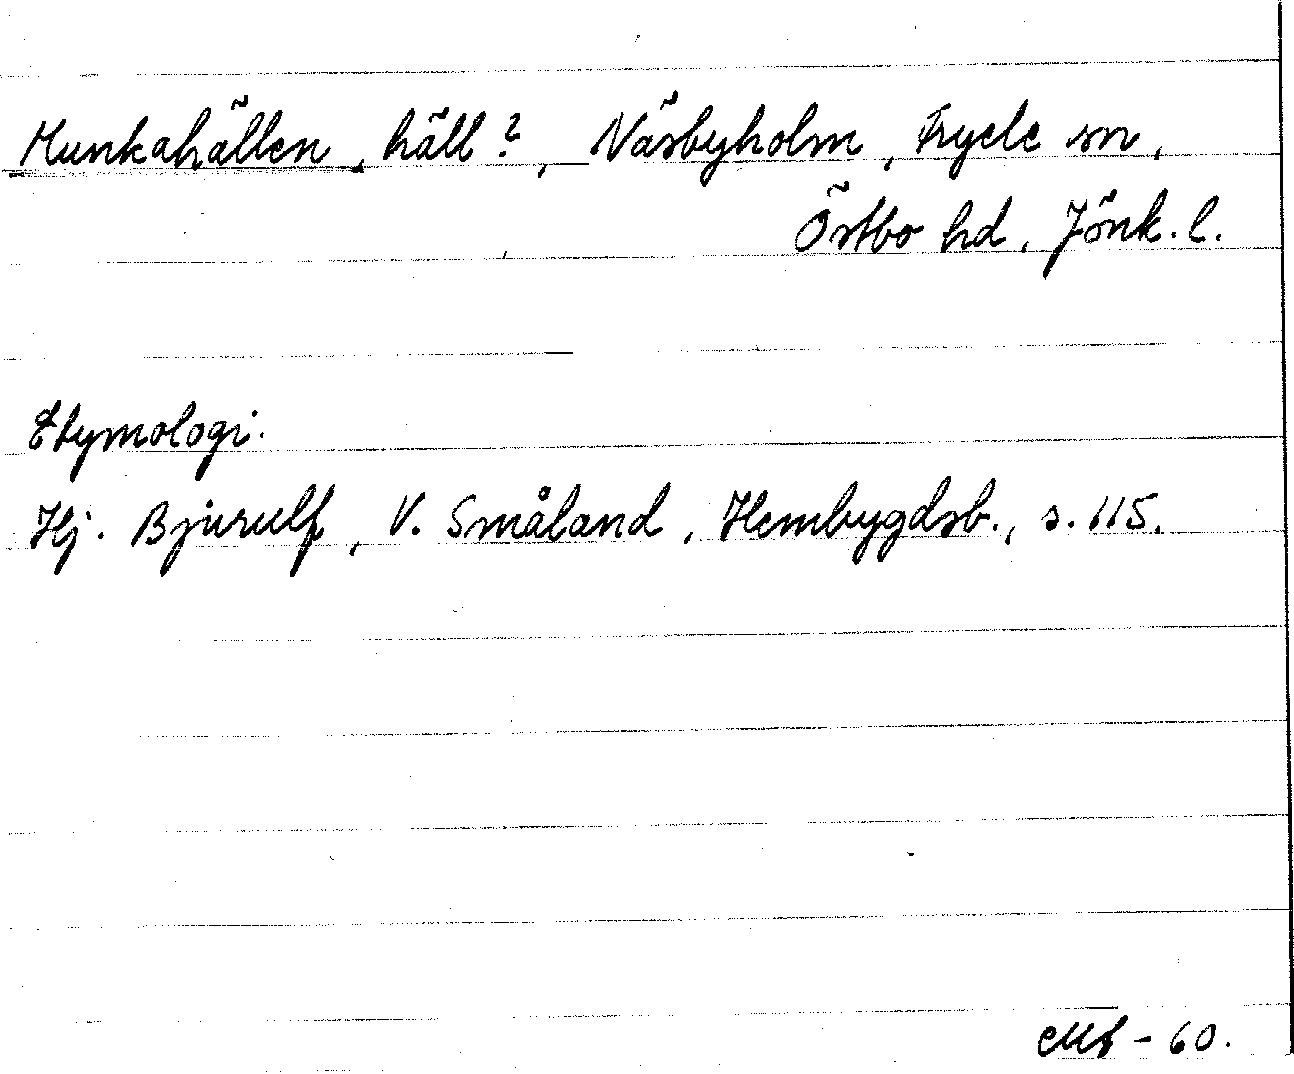 Munkahällen, häll?, Näsbyholm, Fryele sn,
Östbo hd, Jönk. l.
Etymologi.
Hj. Bjurulf, V. Småland, Hembygdsb., s. 115.
- 60.